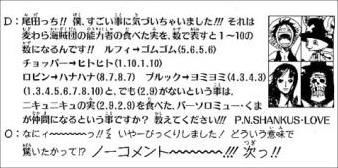 D：尾田っち!! 僕、すごい事に気づいちゃいました!!! それは
変わら海賊団の能力者の食べた実を、数で表すと1〜10の
数になるんです!! ルフィ→ゴムゴム(5.6.5.6)
チョッパー→ヒトヒト(1.10.1.10)
ロビン→ハナハナ(8.7.8.7) ブルック→ヨミヨミ(4.3.4.3)
(1.3.4.5.6.7.8.10)と、でも(2.9)がないという事は、
ニキュニキュの実(2.9.2.9)を食べた、バーソロミュー・くま
が仲間になるという事ですか? 教えてください!!! P.N.SHANKUS・LOVE
O：なにィ〜〜〜〜っ!! いやーびっくりしました! どういう意味で
驚いたかって!? ノーコメント〜〜〜〜〜!!! 次っ!!